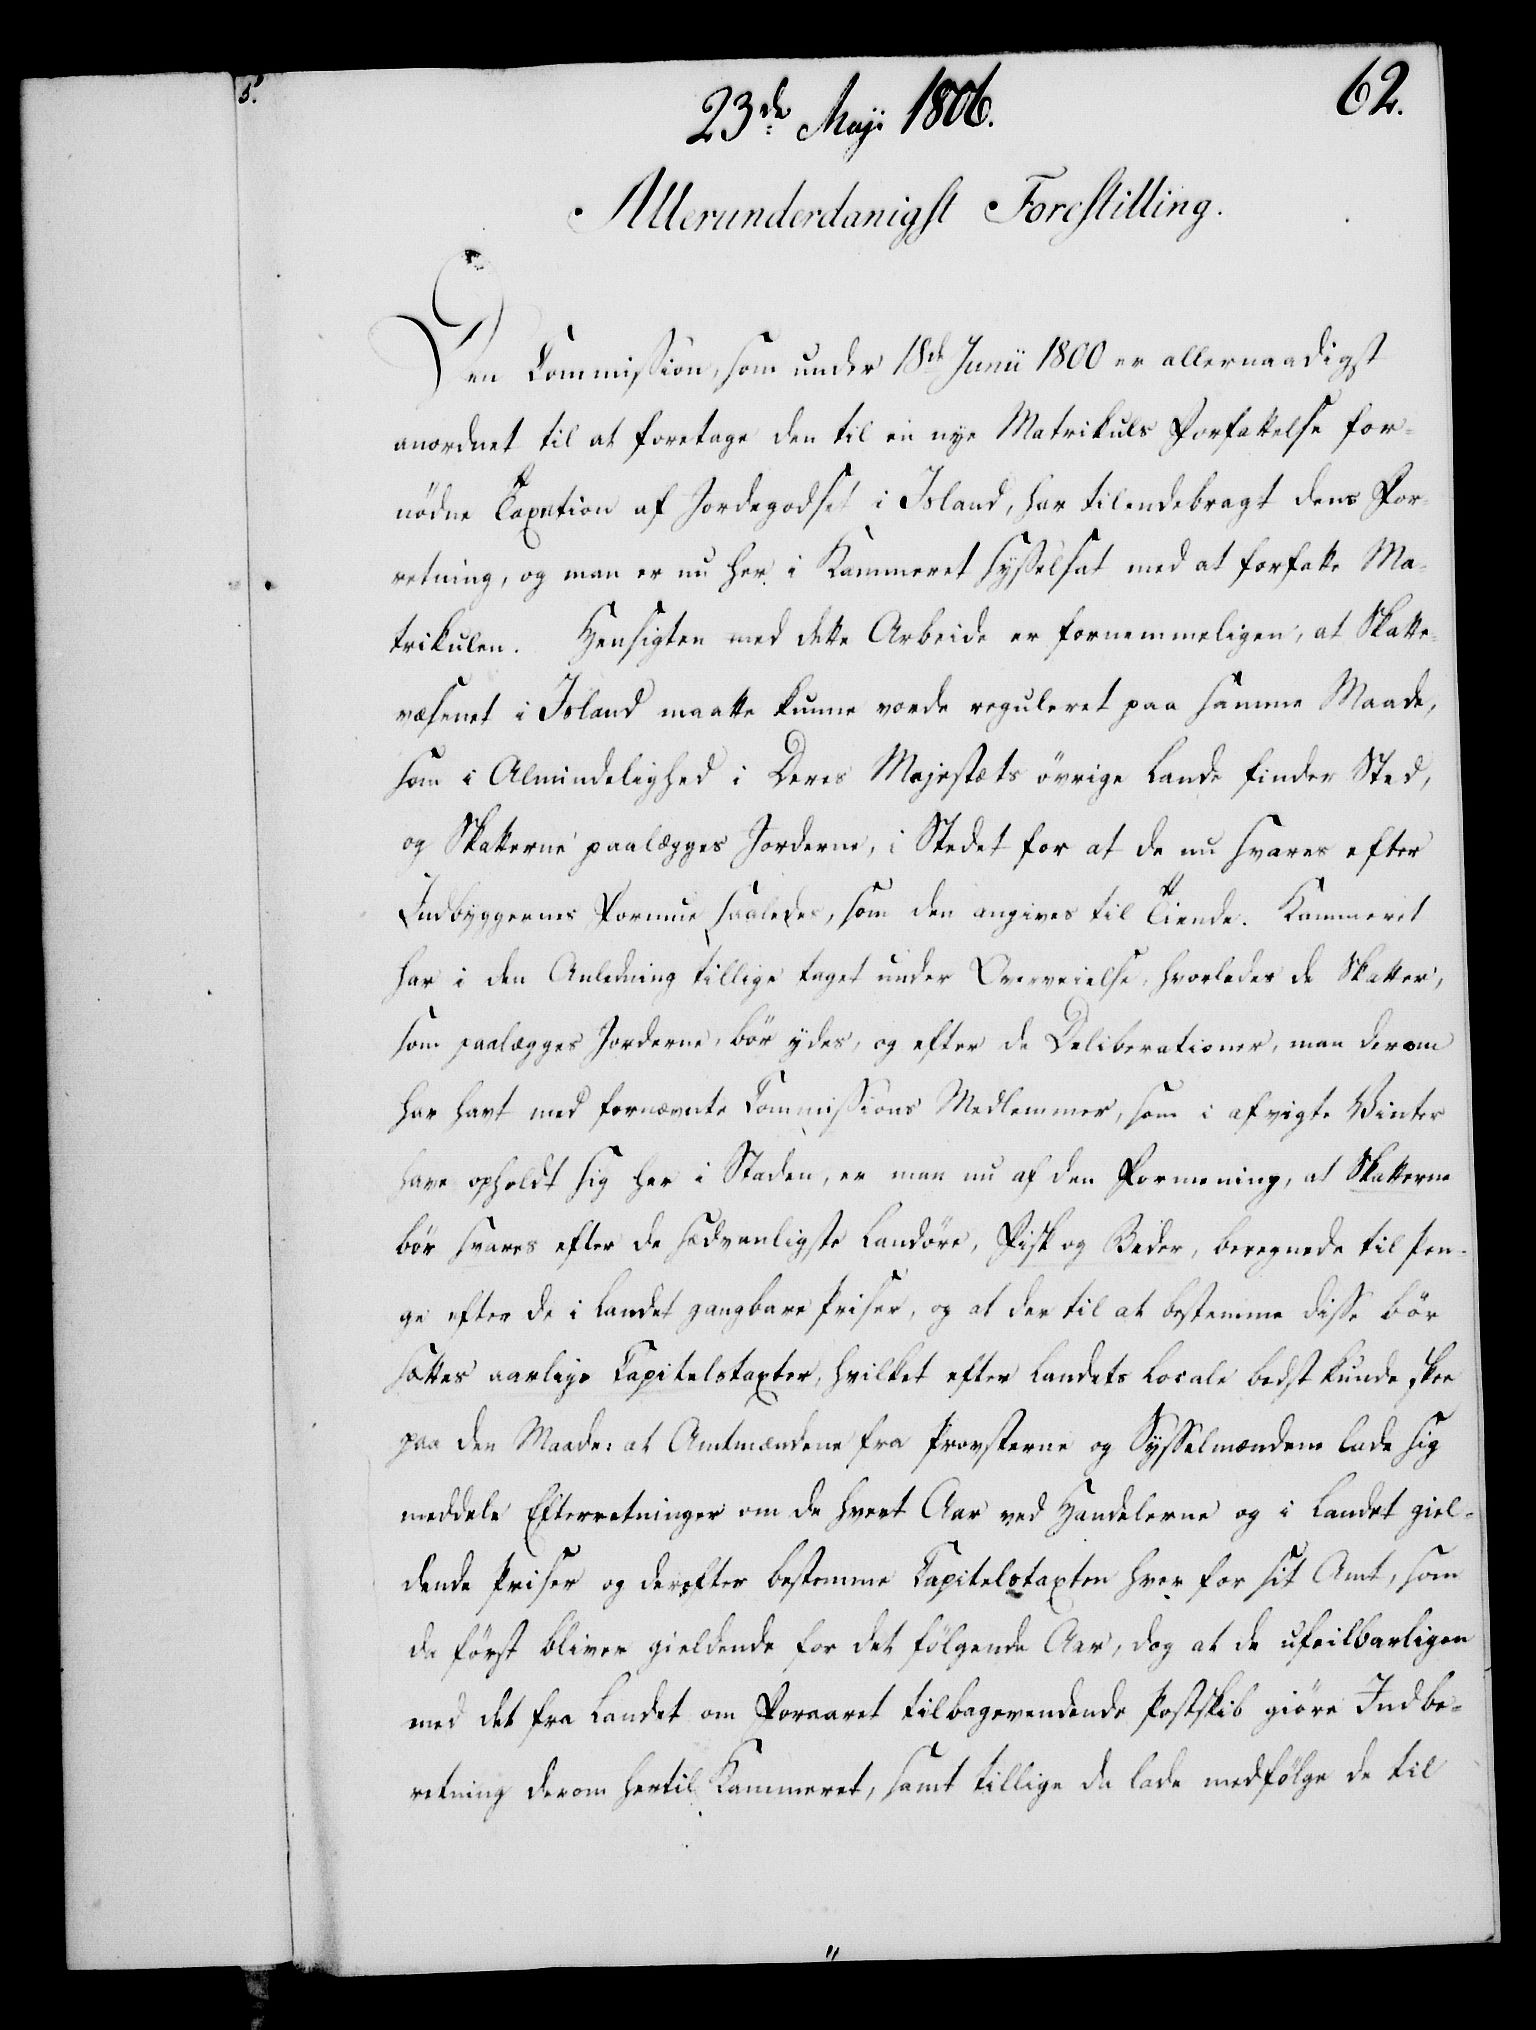 5.
62.
23de Maji 1806.
Allerunderdanigst Forestilling.
Den Commission, som under 18de Junii 1800 er allernaadigst
anordnet til at foretage den til en nye Matrikuls Forfattelse for-
nödne Taxation af Jordegodset i Island, har tilendebragt dens For-
retning, og man er nu her i Kammeret sysselsat med at forfatte Ma-
trikulen. Hensigten med dette Arbeide er fornemmeligen, at Skatte-
væsenet i Island maatte kunne vorde reguleret paa samme Maade,
som i Almindelighed i Deres Majestæts övrige Lande finder Sted,
og Skatterne paalægges Jorderne, i Stedet for at de nu svares efter
Indbyggernes Formue saaledes, som den angives til Tiende. Kammeret
har i den Anledning tillige taget under Overveielse, hvorledes de Skatter,
som paalægges Jorderne, bör ydes, og efter de Deliberationer, man derom
har havt med fornævnte Commissions Medlemmer, som i afvigte Vinter
have opholdt sig her i Staden, er man nu af den Formening, at Skatterne
bör svares efter de sædvanligste Landöre, Fisk og Beder, beregnede til Pen-
ge efter de i Landet gangbare Priser, og at der til at bestemme disse bör
sættes aarlige Capitelstaxter, hvilket efter Landets Locale bedst kunde skee
paa den Maade: at Amtmændene fra Provsterne og Sysselmændene lade sig
meddele Efterretninger om de hvert Aar ved Handelerne og i Landet giel-
dende Priser og derefter bestemme Capitelstaxten hver for sit Amt, som
da först bliver gieldende for det fölgende Aar, dog at de ufeilbarligen
med det fra Landet om Foraaret tilbagevendende Postskib giöre Indbe-
retning derom hertil Kammeret, samt tillige da lade medfölge de til
"